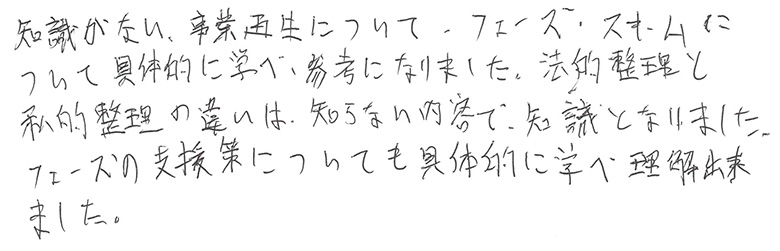 知識がない、事業再生について、フェーズ・スキームに
ついて具体的に学べ、参考になりました。法的整理と
私的整理の違いは、知らない内容で、知識となりました。
フェーズの支援策についても具体的に学べ理解出来
ました。